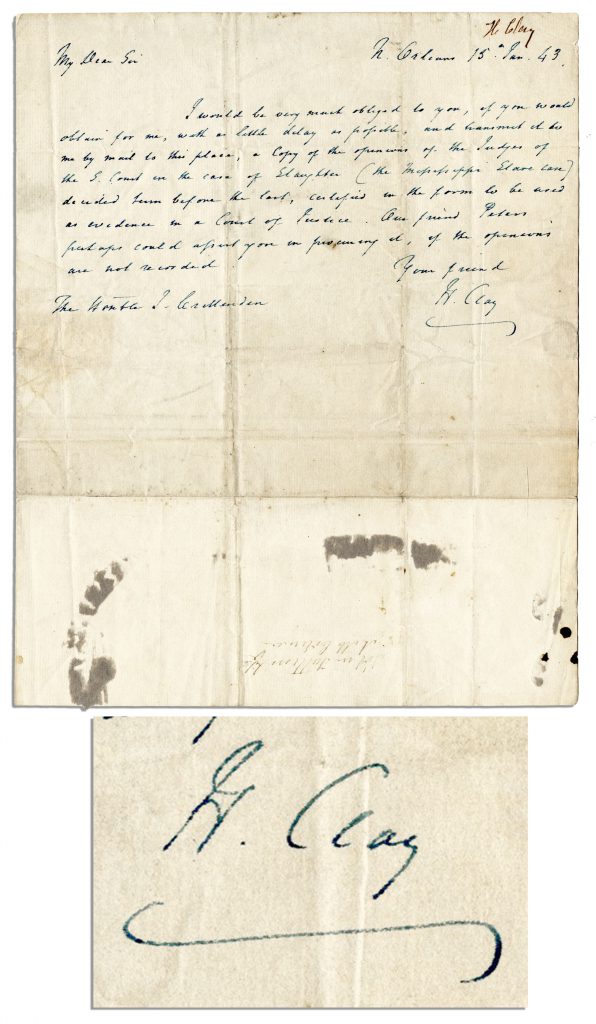 H Clay
My Dear Sir
N. Orleans 15th Jan. 43.
I would be very much obliged to you, if you would
obtain for me, with as little delay as possible, and transmit it to
me by mail to this place, a Copy of the opinions of the Judges of
the S. Court in the case of Slaughter (the Mississippi Slave case)
decided term before the last, certified in the form to be used
as evidence in a Court of Justice. Our friend Peters
perhaps could assist you in procuring it, if the opinions
are not recorded.
Your friend
H. Clay
The Honble J. Crittenden
H. Clay